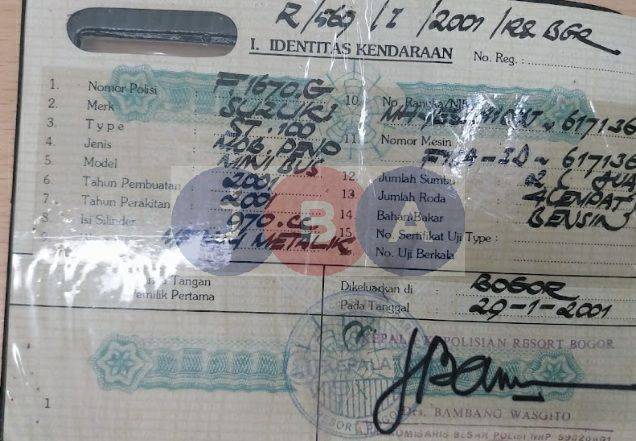 R/569/I/2001/RES BGR
I. IDENTITAS KENDARAAN
No. Reg. :
1. Nomor Polisi : F.1670.G
2. Merk : SUZUKI
3. Type : ST.100
4. Jenis : MOB. PENP
5. Model : MINIBUS
6. Tahun Pembuatan : 2001
7. Tahun Perakitan : 2001
8. Isi Silinder : 970.CC
METALIK
10. No. Rangka/NIK 617136
11. Nomor Mesin F10A-ID-617136
12. Jumlah Sumbu 2 ( DUA
13. Jumlah Roda 4(EMPAT)
14. Bahan Bakar BENSIN
15. No. Sertifikat Uji Type :
No. Uji Berkala
Tangan
Pemilik Pertama
Dikeluarkan di : BOGOR
Pada Tanggal 29-1-2001
1
KEPALA KEPOLISIAN RESORT BOGOR
BAMBANG WASGITO
KOMISARIS BESAR POLISI NRP
BA